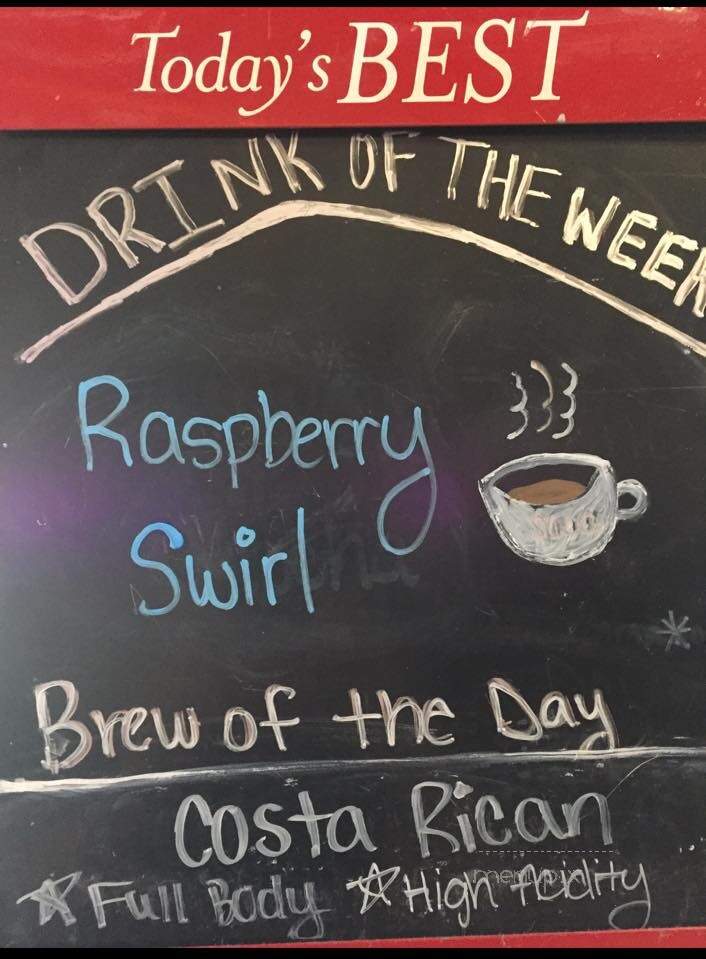 Today's BEST
DRINK OF THE WEEK
Raspberry
Swirl
Brew of the Day
Costa Rican
Full Body High Acidity